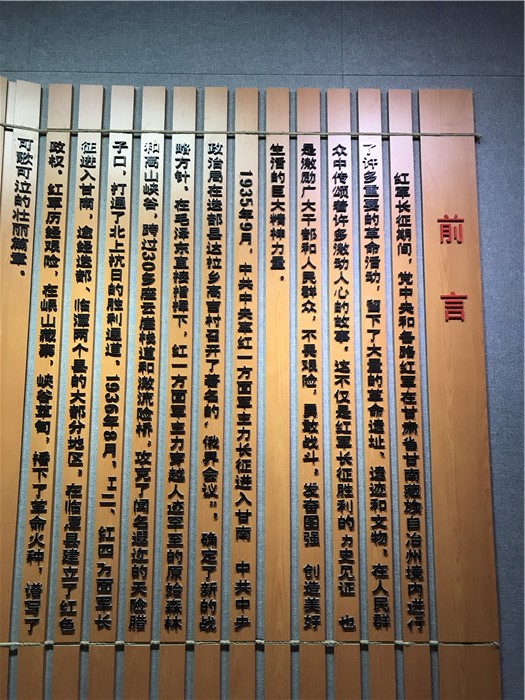 前言
红军长征期间，党中央和各路红军在甘肃省甘南藏族自治州境内进行
了许多重要的革命活动，留下了大量的革命遗址、遗迹和文物。在人民群
众中传颂着许多激动人心的故事。这不仅是红军长征胜利的力史见证 也
是激励广大干部和人民群众，不畏艰险，勇敢战斗，发奋图强 创造美好
生活的巨大精神力量。
1935年9月，中共中央率红一方面军主力长征进入甘南 中共中央
政治局在迭部县达拉乡高吉村召开了著名的“俄界会议”，确定了新的战
略方针。在毛泽东直接指挥下，红一方面军主力穿越人迹罕至的原始森林
和高山峡谷，跨过30多座云崖栈道和激流险桥，攻克了闻名遐迩的天险腊
子口，打通了北上抗日的胜利通道。1936年8月，红二、红四方面军长
征进入甘南，途经迭部、临潭两个县的大部分地区，在临潭县建立了红色
政权。红军历经艰险，在岷山藏寨，峡谷草甸，播下了革命火种，谱写了
可歌可泣的壮丽篇章。